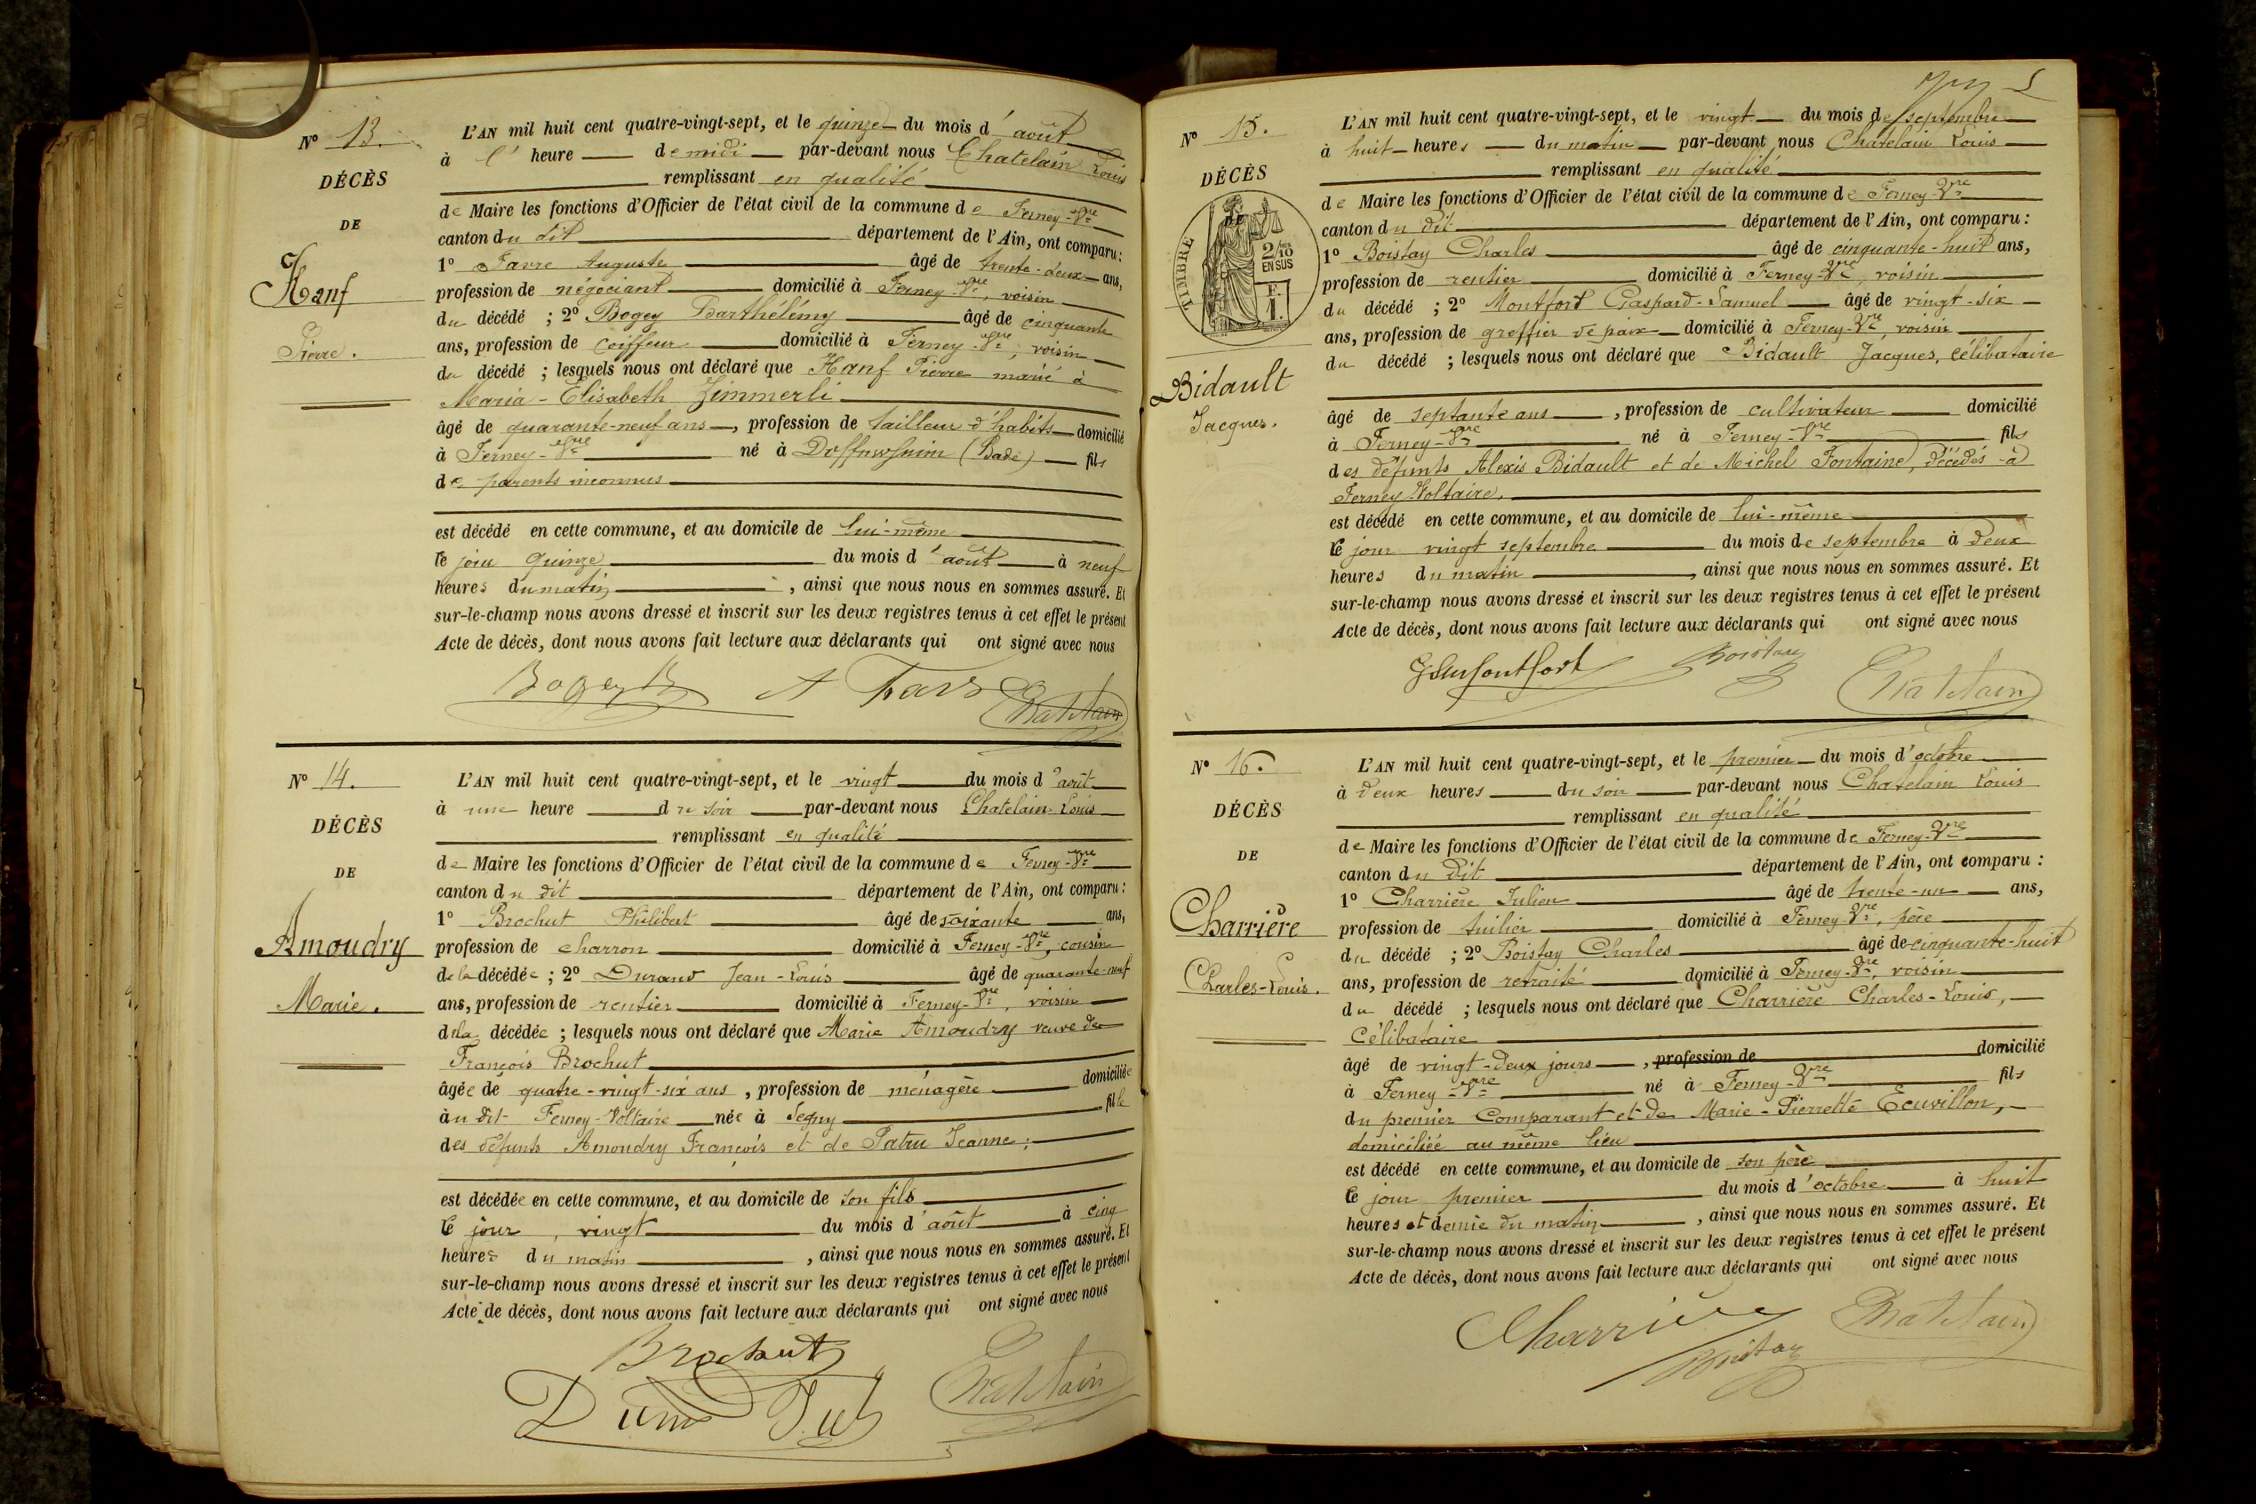 N° 13.
DÉCÈS
DE
Hanf
Pierre.
L'AN mil huit cent quatre-vingt-sept, et le quinze du mois d'août
à l' heure de midi par-devant nous Chatelain Louis
remplissant en qualité
de Maire les fonctions d'Officier de l'état civil de la commune de Ferney-Vre
canton du dit département de l'Ain, ont comparu :
1° Favre Auguste âgé de trente-deux ans,
profession de négociant domicilié à Ferney-Vre, voisin
du décédé ; 2° Bogey Barthélémy âgé de cinquante
ans, profession de coiffeur domicilié à Ferney-Vre, voisin
du décédé ; lesquels nous ont déclaré que Hanf Pierre marié à
Maria-Elisabeth Zimmerli
âgé de quarante-neuf ans, profession de tailleur d'habits domicilié
à Ferney-Vre né à (Bade) fils
de parents inconnus
est décédé en cette commune, et au domicile de lui-même
ce jour quinze du mois d'août à neuf
heures du matin, ainsi que nous nous en sommes assuré. Et
sur-le-champ nous avons dressé et inscrit sur les deux registres tenus à cet effet le présent
Acte de décès, dont nous avons fait lecture aux déclarants qui ont signé avec nous
Bogey B A Favre Chatelain
N° 14.
DÉCÈS
DE
Amoudry
Marie.
L'AN mil huit cent quatre-vingt-sept, et le vingt du mois d'août
à une heure du soir par-devant nous Chatelain Louis
remplissant en qualité
de Maire les fonctions d'Officier de l'état civil de la commune de Ferney-Vre
canton du dit département de l'Ain, ont comparu :
1° Brochut Philibert âgé de soixante ans,
profession de charron domicilié à Ferney-Vre, cousin
de la décédée ; 2° Durand Jean-Louis âgé de quarante-neuf
ans, profession de rentier domicilié à Ferney-Vre, voisin
de la décédée ; lesquels nous ont déclaré que Marie Amoudry veuve de
François Brochut
âgée de quatre-vingt-six ans, profession de ménagère domiciliée
au dit Ferney-Voltaire née à Segny fille
des défunts Amoudry François et de Patru Jeanne ;
est décédée en cette commune, et au domicile de son fils
ce jour, vingt du mois d'août à cinq
heures du matin, ainsi que nous nous en sommes assuré. Et
sur-le-champ nous avons dressé et inscrit sur les deux registres tenus à cet effet le présent
Acte de décès, dont nous avons fait lecture aux déclarants qui ont signé avec nous
Brochut
Chatelain
N° 15.
DÉCÈS
DE
TIMBRE
2/10
EN SUS
F.
1.
Bidault
Jacques.
L'AN mil huit cent quatre-vingt-sept, et le vingt du mois de septembre
à huit heures du matin par-devant nous Chatelain Louis
remplissant en qualité
de Maire les fonctions d'Officier de l'état civil de la commune de Ferney-Vre
canton du dit département de l'Ain, ont comparu :
1° Boistay Charles âgé de cinquante-huit ans,
profession de rentier domicilié à Ferney-Vre, voisin
du décédé ; 2° Montfort Gaspard-Samuel âgé de vingt-six
ans, profession de greffier de paix domicilié à Ferney-Vre, voisin
du décédé ; lesquels nous ont déclaré que Bidault Jacques, célibataire
âgé de septante ans, profession de cultivateur domicilié
à Ferney-Vre né à Ferney-Vre fils
des défunts Alexis Bidault et de Michel Fontaine, décédés à
Ferney-Voltaire.
est décédé en cette commune, et au domicile de lui-même
ce jour vingt septembre du mois de septembre à deux
heures du matin, ainsi que nous nous en sommes assuré. Et
sur-le-champ nous avons dressé et inscrit sur les deux registres tenus à cet effet le présent
Acte de décès, dont nous avons fait lecture aux déclarants qui ont signé avec nous
GSMontfort Boistay Chatelain
N° 16.
DÉCÈS
DE
Charrière
Charles-Louis.
L'AN mil huit cent quatre-vingt-sept, et le premier du mois d'octobre
à deux heures du soir par-devant nous Chatelain Louis
remplissant en qualité
de Maire les fonctions d'Officier de l'état civil de la commune de Ferney-Vre
canton du dit département de l'Ain, ont comparu :
1° Charrière Julien âgé de trente-un ans,
profession de tuilier domicilié à Ferney-Vre, père
du décédé ; 2° Boistay Charles âgé de cinquante-huit
ans, profession de retraité domicilié à Ferney-Vre, voisin
du décédé ; lesquels nous ont déclaré que Charrière Charles-Louis,
célibataire
âgé de vingt-deux jours, profession de domicilié
à Ferney-Vre né à Ferney-Vre fils
du premier comparant et de Marie-Pierrette Ecuvillon,
domiciliée au même lieu
est décédé en cette commune, et au domicile de son père
ce jour premier du mois d'octobre à huit
heures et demie du matin, ainsi que nous nous en sommes assuré. Et
sur-le-champ nous avons dressé et inscrit sur les deux registres tenus à cet effet le présent
Acte de décès, dont nous avons fait lecture aux déclarants qui ont signé avec nous
Charrière Chatelain
Boistay